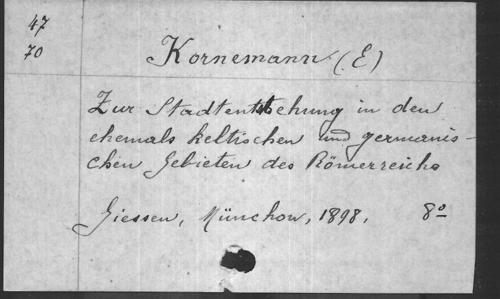 47
70
Kornemann (E)
Zur Stadtentstehung in den
ehemals keltischen und germanis-
chen Gebieten des Römerreichs
Giessen, Münchow, 1898, 8º